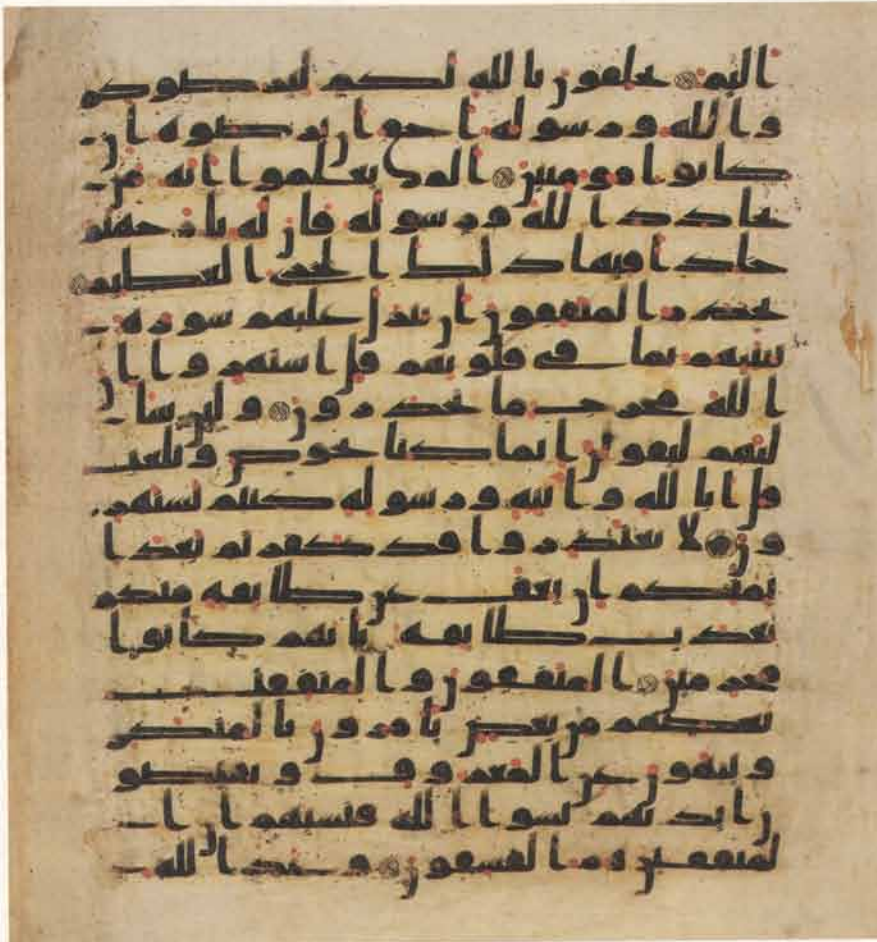 اليم يحلفون بالله لكم ليرضوكم
والله ورسوله احق ان يرضوه ان
كانوا مومنين الم يعلموا انه من
يحادد الله ورسوله فان له نار جهنم
خلدا فيها ذلك الخزي العظيم
يحذر المنفقون ان تنزل عليهم سورة
تنبيهم بما في قلوبهم قل استهزوا ان
الله مخرج ما تحذرون ولين سا
لتهم ليقولن انما كنا نخوض ونلعب
قل ابالله وايته ورسوله كنتم تستهز
ون لا تعتذروا قد كفرتم بعد ا
يمنكم ان نعف عن طايفة منكم
نعذب طايفة بانهم كانوا
مجرمين المنفقون والمنفقت
بعضهم من بعض يامرون بالمنكر
وينهون عن المعروف ويقبضو
ن ايديهم نسوا الله فنسيهم ان ا
لمنفقين هم الفسقون وعد الله